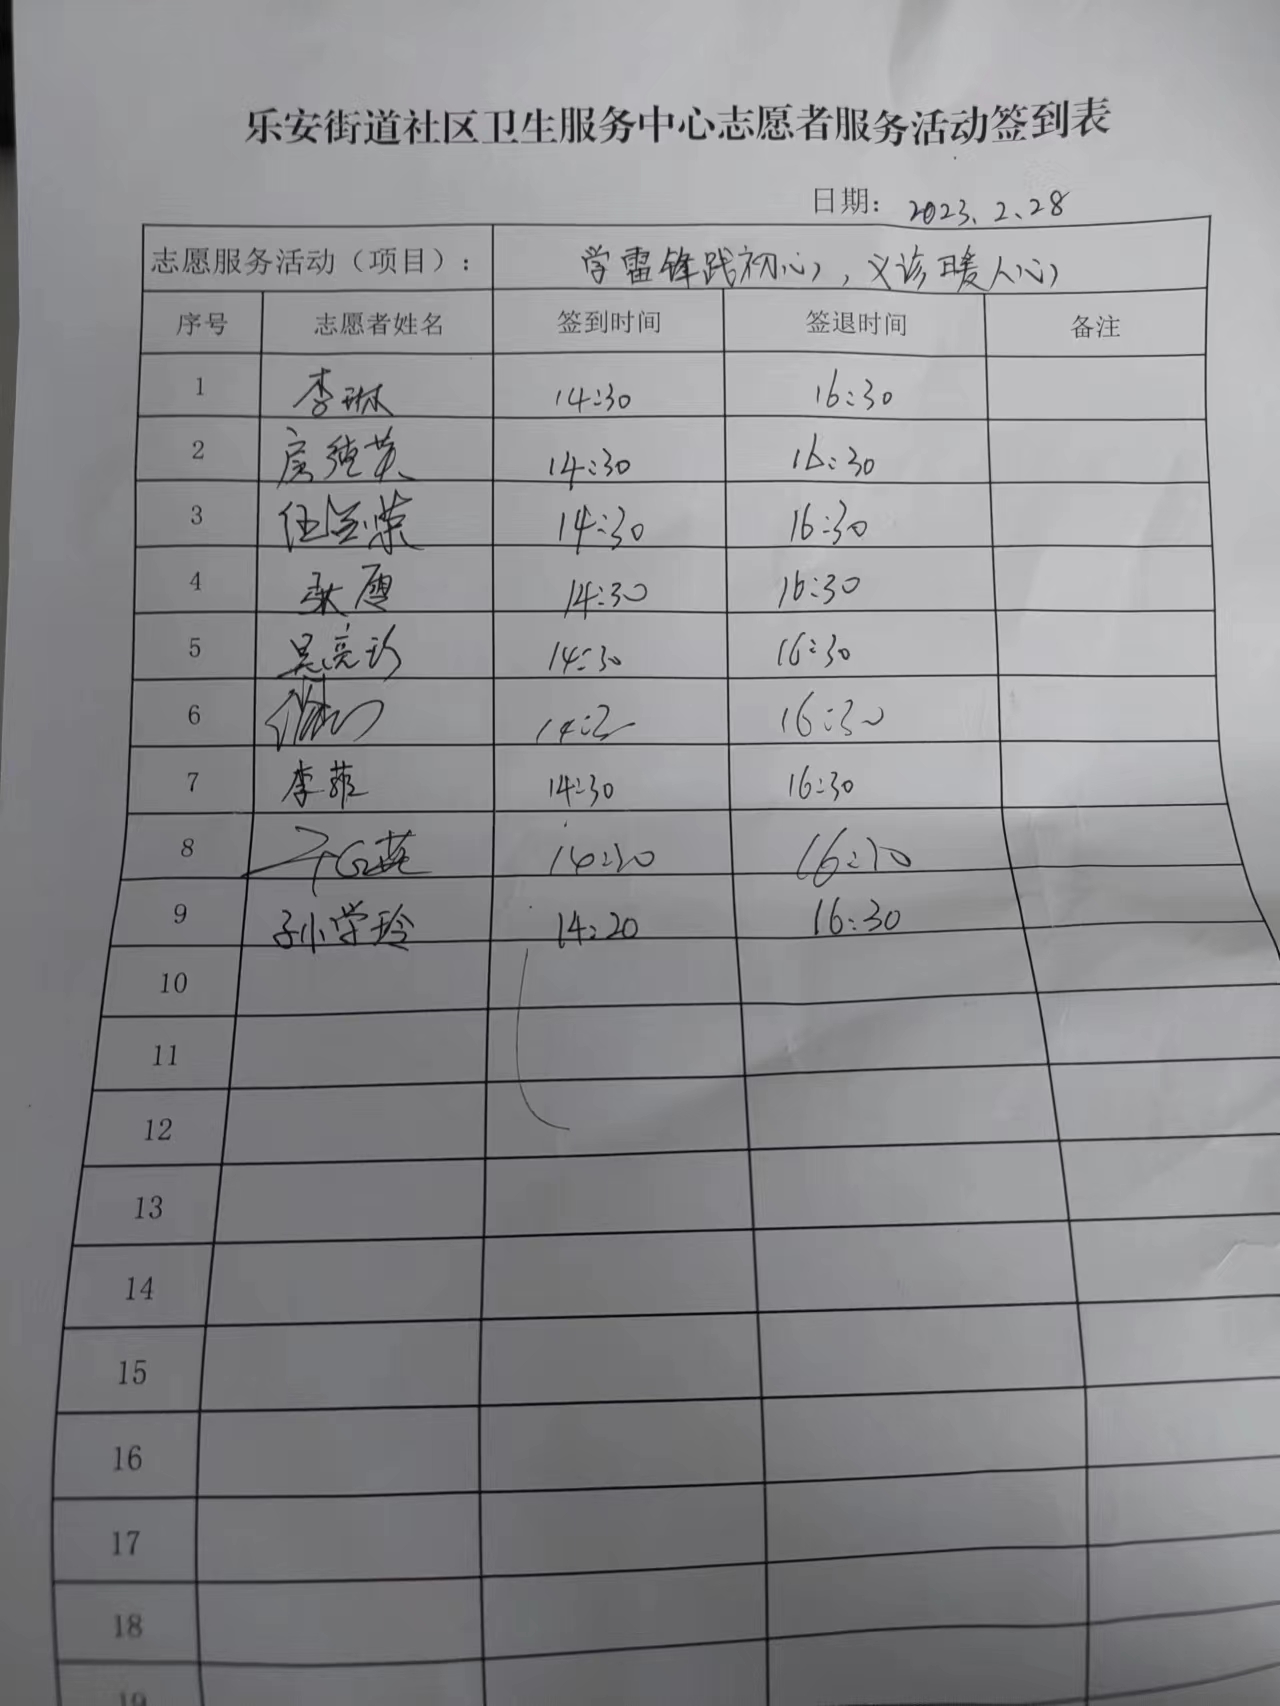 乐安街道社区卫生服务中心志愿者服务活动签到表
日期： 2023.2.28
志愿服务活动（项目）： 学雷锋践初心，义诊暖人心
序号 志愿者姓名 签到时间 签退时间 备注
1 李琳 14:30 16:30
2 14:30 16:30
3 14:30 16:30
4 14:30 16:30
5 吴亮 14:30 16:30
6 16:30
7 李菲 14:30 16:30
8
9 孙学玲 14:20 16:30
10
11
12
13
14
15
16
17
18
19